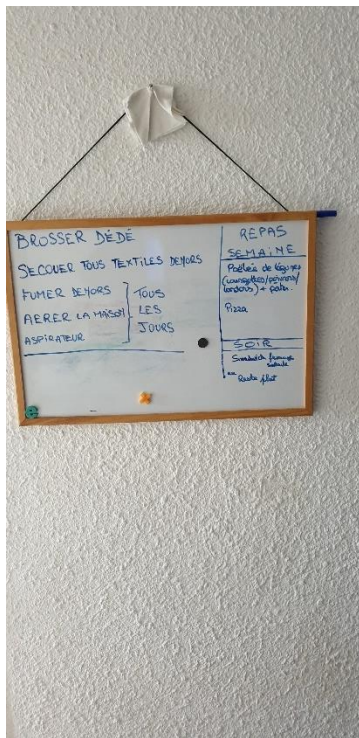 BROSSER DÉDÉ
SECOUER TOUS TEXTILES DEHORS
FUMER DEHORS
AERER LA MAISON
ASPIRATEUR
TOUS
LES
JOURS
REPAS
SEMAINE
Poêlée de légumes
(courgettes/poivrons/
lardons) + pâtes
Pizza
SOIR
Sandwich fromage
salade
Reste plat